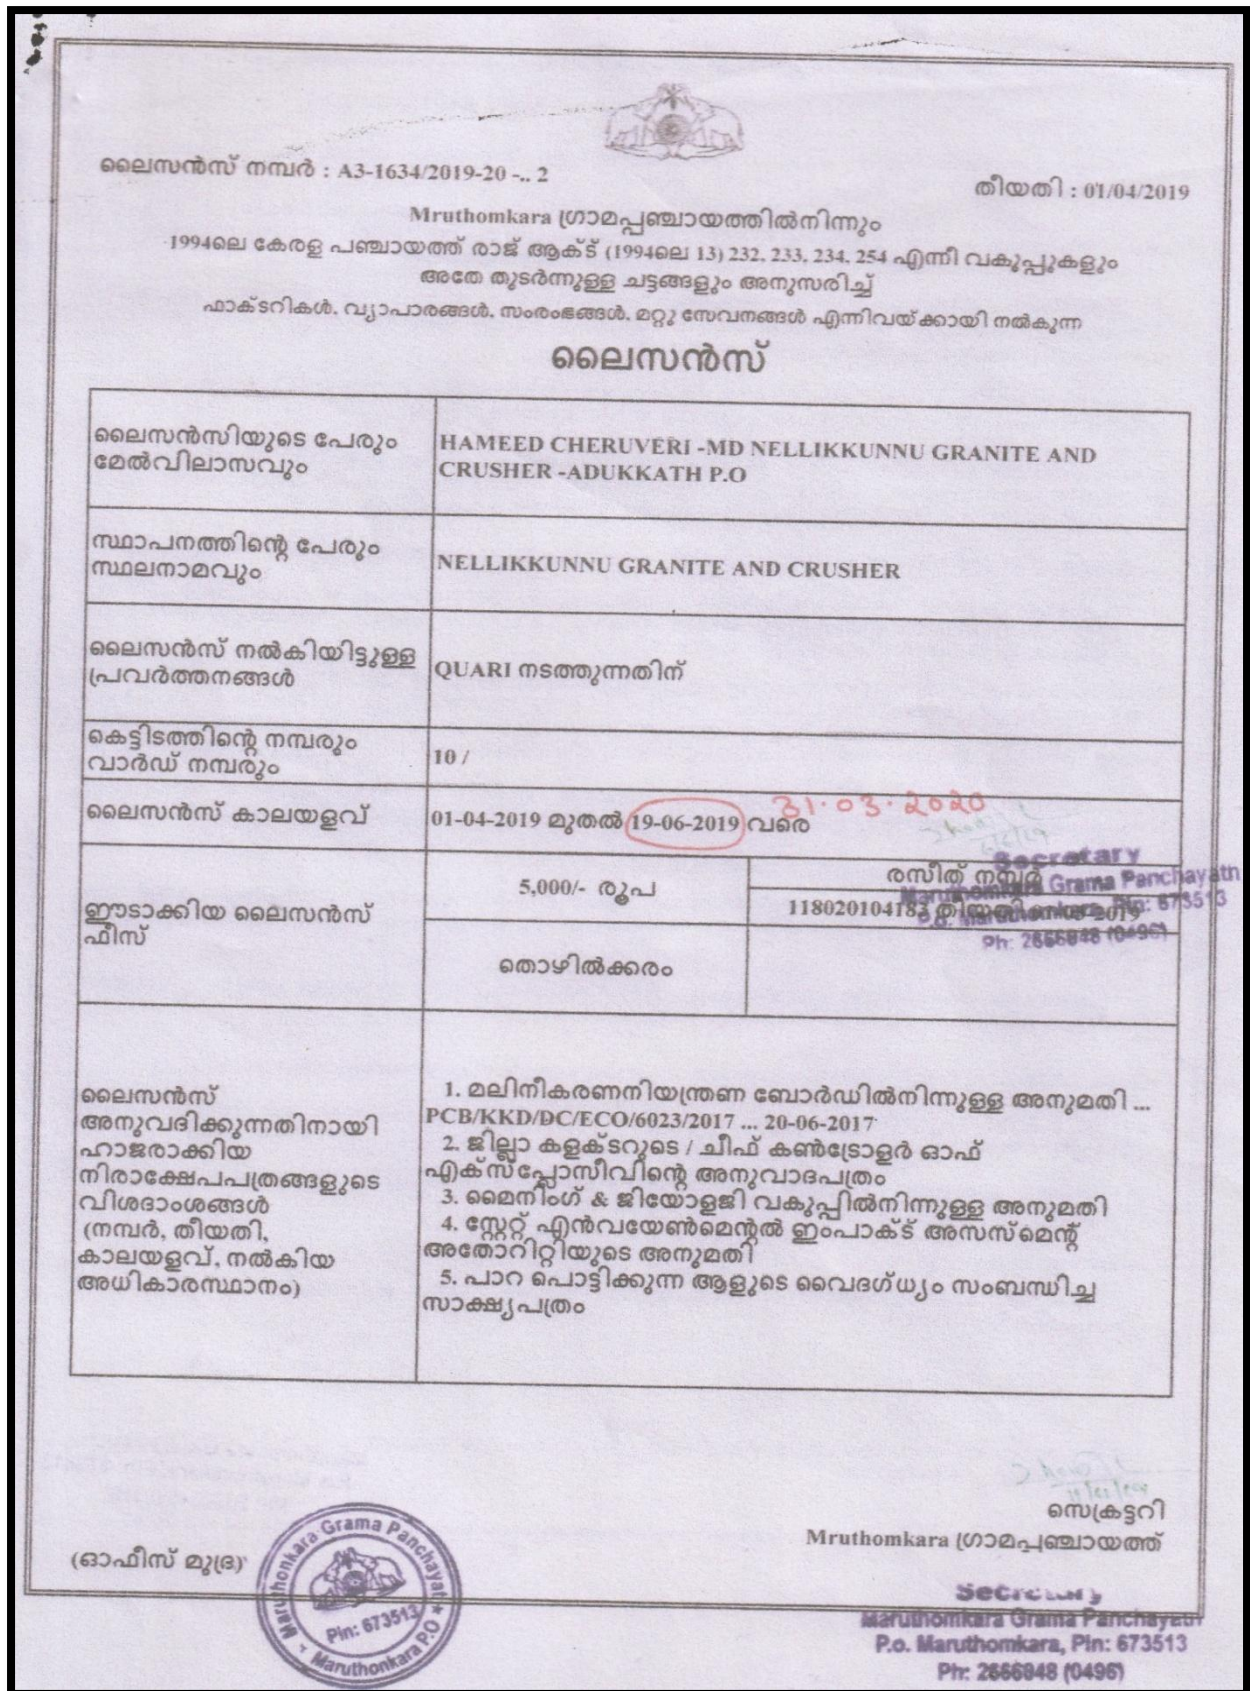 ലൈസൻസ് നമ്പർ : A3-1634/2019-20 -.. 2
തീയതി : 01/04/2019
Mruthomkara ഗ്രാമപ്പഞ്ചായത്തിൽനിന്നും
1994ലെ കേരള പഞ്ചായത്ത് രാജ് ആക്ട് (1994ലെ 13) 232, 233, 234, 254 എന്നീ വകുപ്പുകളും
അതേ തുടർന്നുള്ള ചട്ടങ്ങളും അനുസരിച്ച്
ഫാക്ടറികൾ, വ്യാപാരങ്ങൾ, സംരംഭങ്ങൾ, മറ്റു സേവനങ്ങൾ എന്നിവയ്ക്കായി നൽകുന്ന
ലൈസൻസ്
ലൈസൻസിയുടെ പേരും
മേൽവിലാസവും
HAMEED CHERUVERI -MD NELLIKKUNNU GRANITE AND
CRUSHER -ADUKKATH P.O
സ്ഥാപനത്തിന്റെ പേരും
സ്ഥലനാമവും
NELLIKKUNNU GRANITE AND CRUSHER
ലൈസൻസ് നൽകിയിട്ടുള്ള
പ്രവർത്തനങ്ങൾ
QUARI നടത്തുന്നതിന്
കെട്ടിടത്തിന്റെ നമ്പരും
വാർഡ് നമ്പരും
10 /
ലൈസൻസ് കാലയളവ്
31.03.2020
01-04-2019 മുതൽ 19-06-2019 വരെ
Secretary
Maruthomkara Grama Panchayath
P.o. Maruthomkara, Pin: 673513
Ph: 2666848 (0496)
ഈടാക്കിയ ലൈസൻസ്
ഫീസ്
5,000/- രൂപ
രസീത് നമ്പർ
118020104183 തീയതി
തൊഴിൽക്കരം
ലൈസൻസ്
അനുവദിക്കുന്നതിനായി
ഹാജരാക്കിയ
നിരാക്ഷേപപത്രങ്ങളുടെ
വിശദാംശങ്ങൾ
(നമ്പർ, തീയതി,
കാലയളവ്, നൽകിയ
അധികാരസ്ഥാനം)
1. മലിനീകരണനിയന്ത്രണ ബോർഡിൽനിന്നുള്ള അനുമതി ...
PCB/KKD/DC/ECO/6023/2017 ... 20-06-2017
2. ജില്ലാ കളക്ടറുടെ / ചീഫ് കൺട്രോളർ ഓഫ്
എക്സ്പ്ലോസീവിന്റെ അനുവാദപത്രം
3. മൈനിംഗ് & ജിയോളജി വകുപ്പിൽനിന്നുള്ള അനുമതി
4. സ്റ്റേറ്റ് എൻവയേൺമെന്റൽ ഇംപാക്ട് അസസ്മെന്റ്
അതോറിറ്റിയുടെ അനുമതി
5. പാറ പൊട്ടിക്കുന്ന ആളുടെ വൈദഗ്ധ്യം സംബന്ധിച്ച
സാക്ഷ്യപത്രം
സെക്രട്ടറി
Mruthomkara ഗ്രാമപ്പഞ്ചായത്ത്
(ഓഫീസ് മുദ്ര)
Maruthonkara Grama Panchayat
Pin: 673513
Maruthonkara P.O
Secretary
Maruthomkara Grama Panchayath
P.o. Maruthomkara, Pin: 673513
Ph: 2666848 (0496)